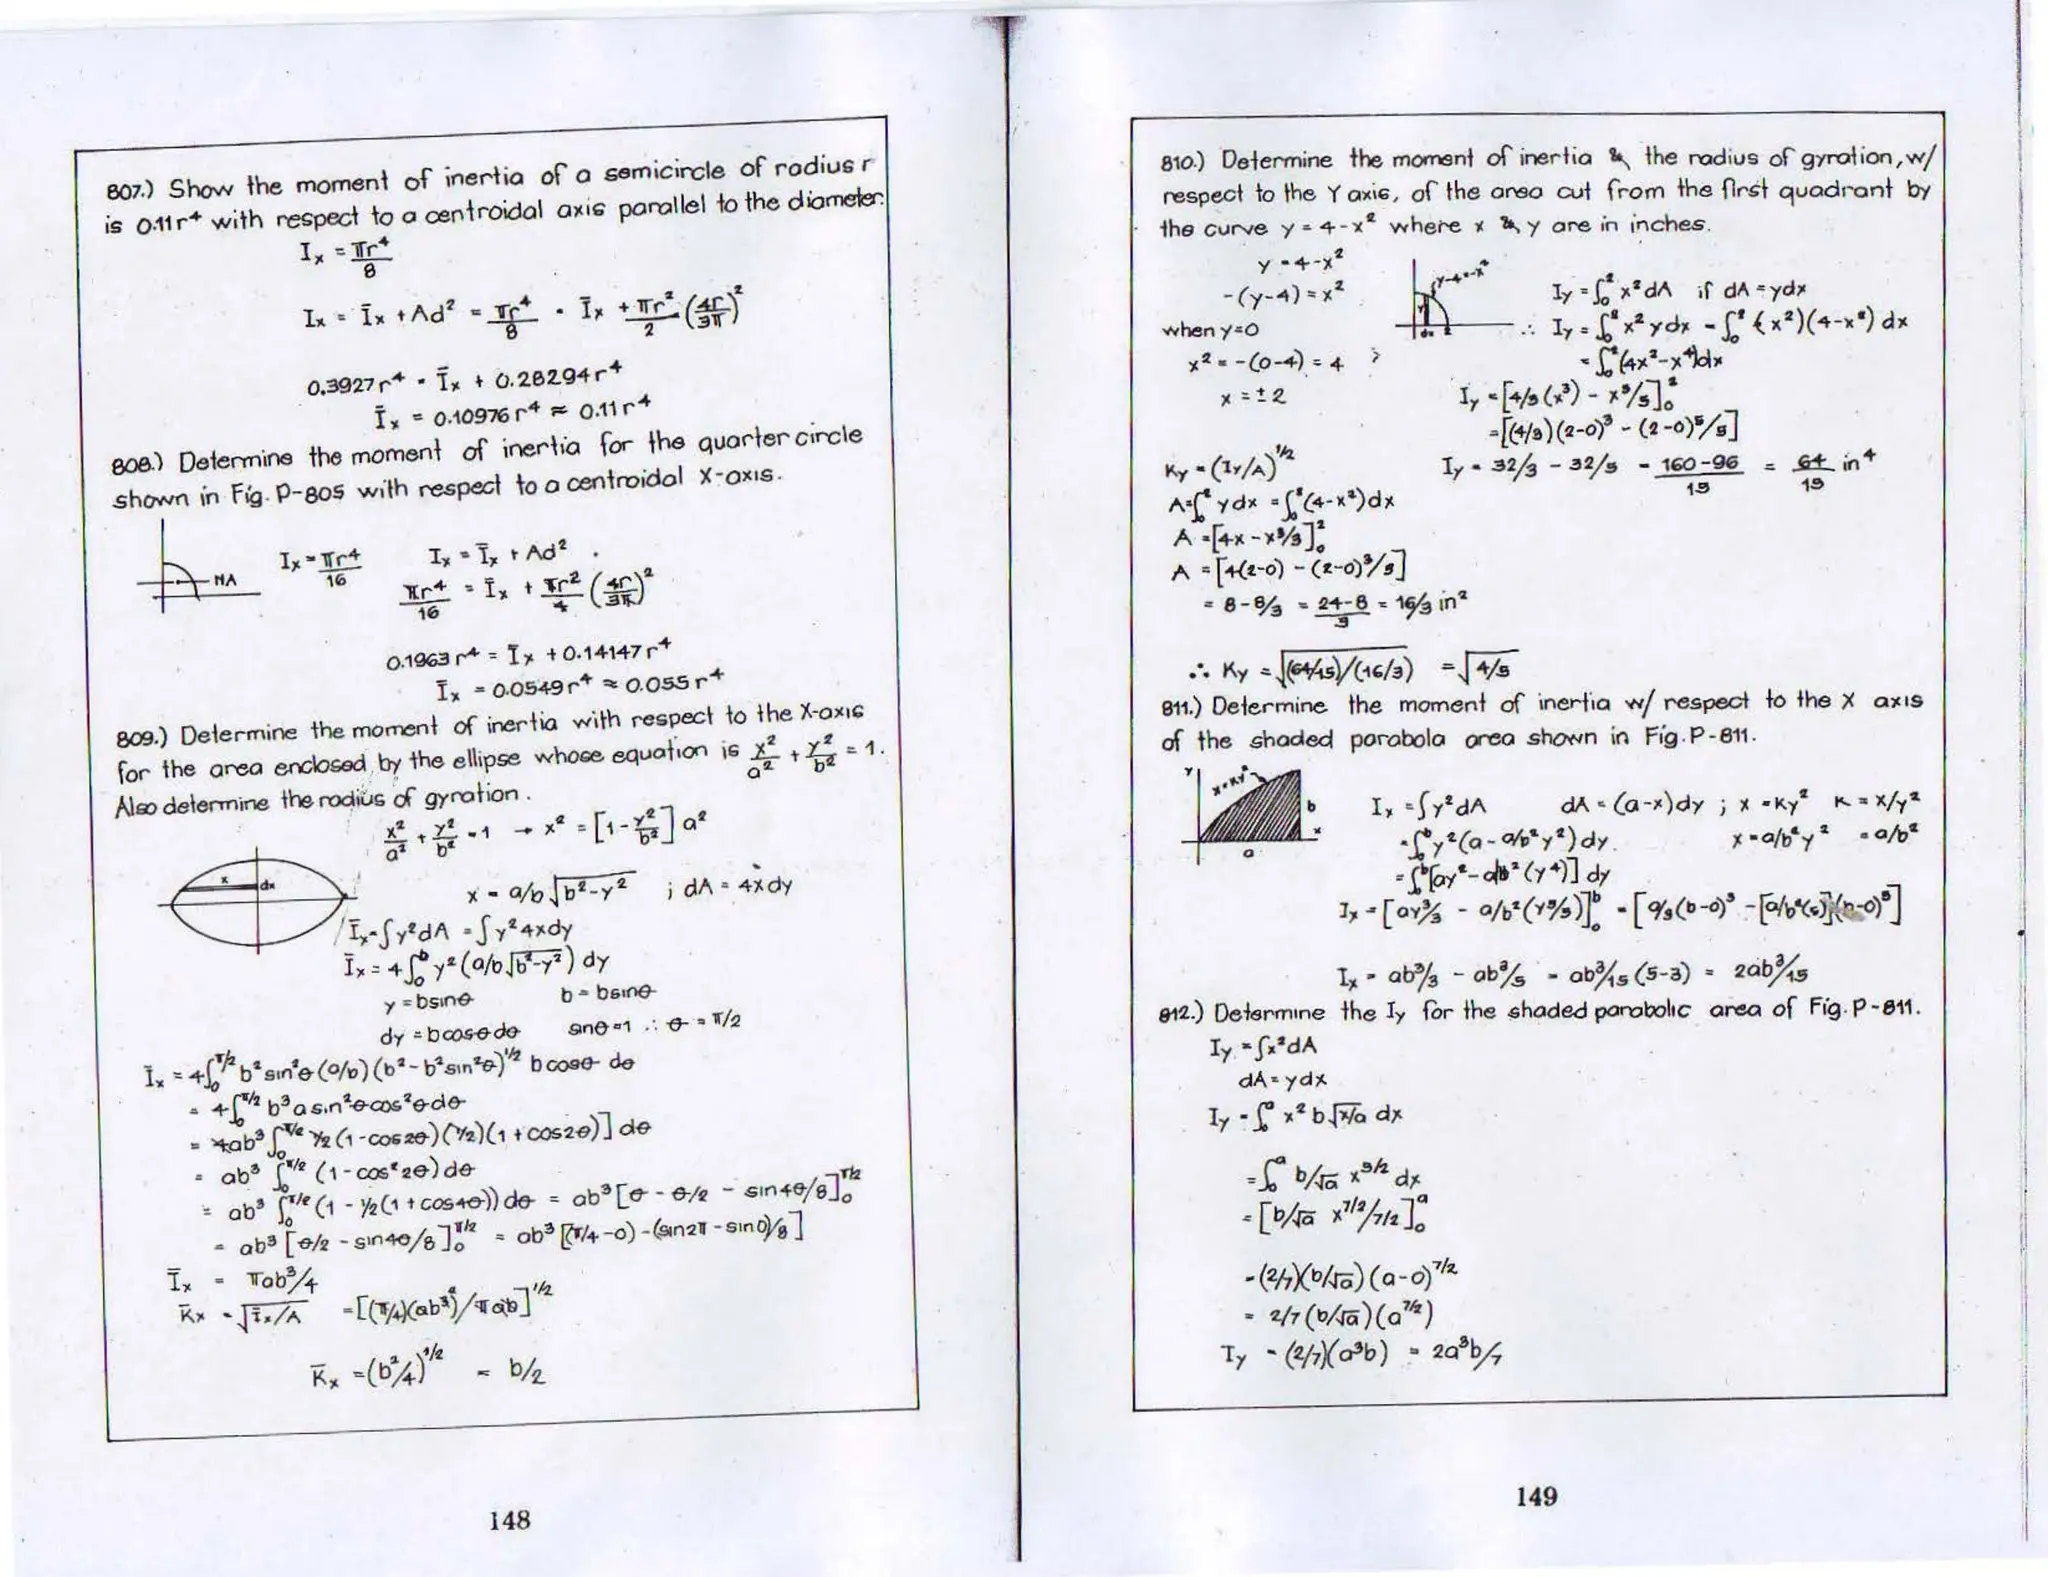 807.) Show the moment of inertia of a semicircle of radius r
is 0.11r⁴ with respect to a centroidal axis parallel to the diameter.
Iₓ = πr⁴/8
Iₓ = Īₓ + Ad² = πr⁴/8 = Īₓ + πr²/2 (4r/3π)²
0.3927r⁴ = Īₓ + 0.28294r⁴
Īₓ = 0.10976r⁴ ≈ 0.11r⁴
808.) Determine the moment of inertia for the quarter circle
shown in Fig. P-805 with respect to a centroidal X-axis.
NA
Iₓ = πr⁴/16    Iₓ = Īₓ + Ad²
πr⁴/16 = Īₓ + πr²/4 (4r/3π)²
0.1963r⁴ = Īₓ + 0.14147r⁴
Īₓ = 0.0549r⁴ ≈ 0.055r⁴
809.) Determine the moment of inertia with respect to the X-axis
for the area enclosed by the ellipse whose equation is x²/a² + y²/b² = 1.
Also determine the radius of gyration.
x²/a² + y²/b² = 1 → x² = [1 - y²/b²] a²
x dx
x = a/b √b²-y² ; dA = 4xdy
Īₓ = ∫y²dA = ∫y²4xdy
Īₓ = 4∫₀ᵇ y²(a/b √b²-y²) dy
y = bsinθ    b = bsinθ
dy = bcosθdθ    sinθ=1 ∴ θ = π/2
Īₓ = 4∫₀^π/2 b²sin²θ(a/b)(b²-b²sin²θ)^1/2 bcosθ dθ
= 4∫₀^π/2 b³a sin²θcos²θdθ
= 4ab³∫₀^π/2 ½(1-cos2θ)(½)(1+cos2θ)] dθ
= ab³ ∫₀^π/2 (1-cos²2θ)dθ
= ab³ ∫₀^π/2 (1 - ½(1+cos4θ))dθ = ab³[θ - θ/2 - sin4θ/8]₀^π/2
= ab³[θ/2 - sin4θ/8]₀^π/2 = ab³[(π/4-0)-(sin2π-sin0)/8]
Īₓ = πab³/4
K̄ₓ = √Īₓ/A = [(π/4)(ab³)/πab]^1/2
K̄ₓ = (b²/4)^1/2 = b/2
148
810.) Determine the moment of inertia & the radius of gyration, w/
respect to the Y axis, of the area cut from the first quadrant by
the curve y = 4-x² where x & y are in inches.
y = 4-x²
y-4=-x²
y
dx 2
Iy = ∫₀² x²dA if dA = ydx
-(y-4) = x²
when y=0    ∴ Iy = ∫₀² x²ydx = ∫₀² (x²)(4-x²)dx
x² = -(0-4) = 4    = ∫₀²(4x²-x⁴)dx
x = ±2    Iy = [4/3(x³) - x⁵/5]₀²
= [(4/3)(2-0)³ - (2-0)⁵/5]
Ky = (Iy/A)^1/2    Iy = 32/3 - 32/5 = 160-96/15 = 64/15 in⁴
A = ∫₀² ydx = ∫₀²(4-x²)dx
A = [4x - x³/3]₀²
A = [4(2-0) - (2-0)³/3]
= 8-8/3 = 24-8/3 = 16/3 in²
∴ Ky = √(64/15)/(16/3) = √4/5
811.) Determine the moment of inertia w/ respect to the X axis
of the shaded parabola area shown in Fig. P-811.
y
x=Ky²
b
x
a
Iₓ = ∫y²dA    dA = (a-x)dy ; x = Ky²    K = x/y²
= ∫₀ᵇ y²(a - a/b²y²)dy.    x = a/b²y²    = a/b²
= ∫₀ᵇ[ay² - a/b²(y⁴)] dy
Iₓ = [ay³/3 - a/b²(y⁵/5)]₀ᵇ = [a/3(b-0)³ - [a/b²(5)](b-0)⁵]
Iₓ = ab³/3 - ab³/5 = ab³/15 (5-3) = 2ab³/15
812.) Determine the Iy for the shaded parabolic area of Fig. P-811.
Iy = ∫x²dA
dA = ydx
Iy = ∫₀ᵃ x²b√x/a dx
= ∫₀ᵃ b/√a x^5/2 dx
= [b/√a x^7/2/7/2]₀ᵃ
= (2/7)(b/√a)(a-0)^7/2
= 2/7(b/√a)(a^7/2)
Iy = (2/7)(a³b) = 2a³b/7
149